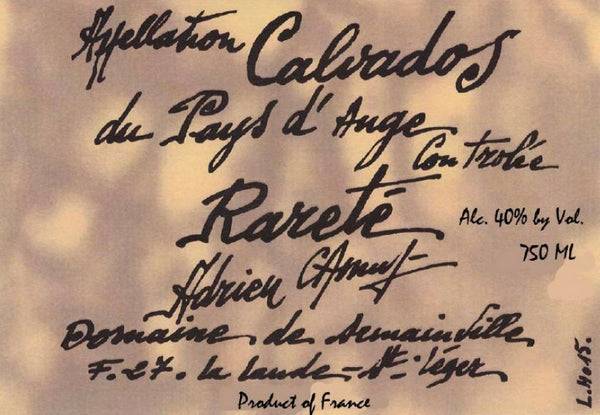 Appellation Calvados
du Pays d'Auge
Controlée
Rareté
Alc. 40% by Vol.
750 ML
Adrien Camut
Domaine de Semainville
F.27. La Lande-St. Léger
Product of France
L.H015.